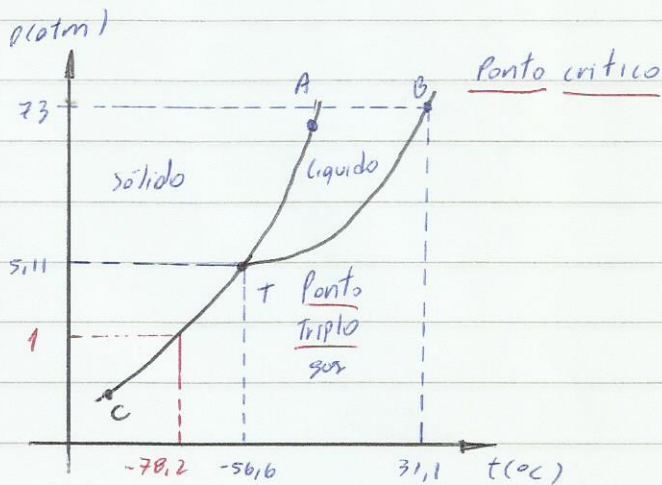 p(atm)
A
B
Ponto crítico
73
sólido
líquido
5,11
T Ponto
Triplo
1
C
-78,2
-56,6
31,1
t(°C)